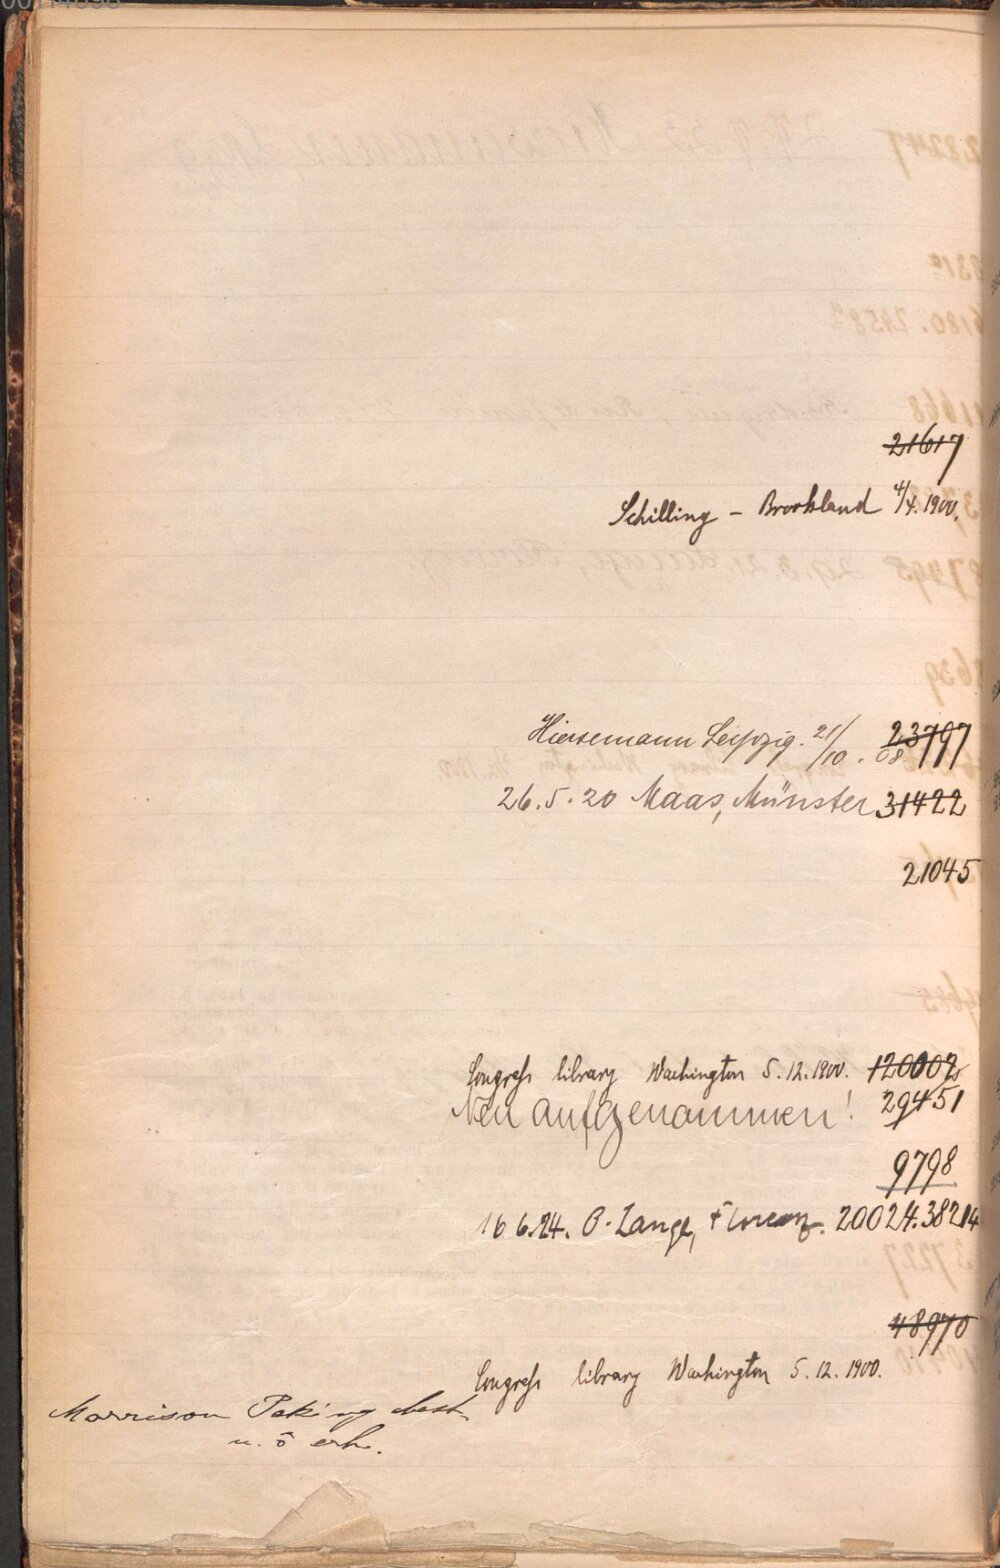 21617
Schilling - Brookland 4/X. 1900.
Hiersemann Leipzig. 21/10. 08 23797
26.5.20 Maas, Münster 31422
21045
Congreſs library Washington 5.12.1900. 120002
Neu aufgenommen! 29451
9798
16 6.24. O. Lange, Florenz. 20024.38214
48970
Congreſs library Washington 5.12.1900.
Morrison Peking best.
u. ō erh.